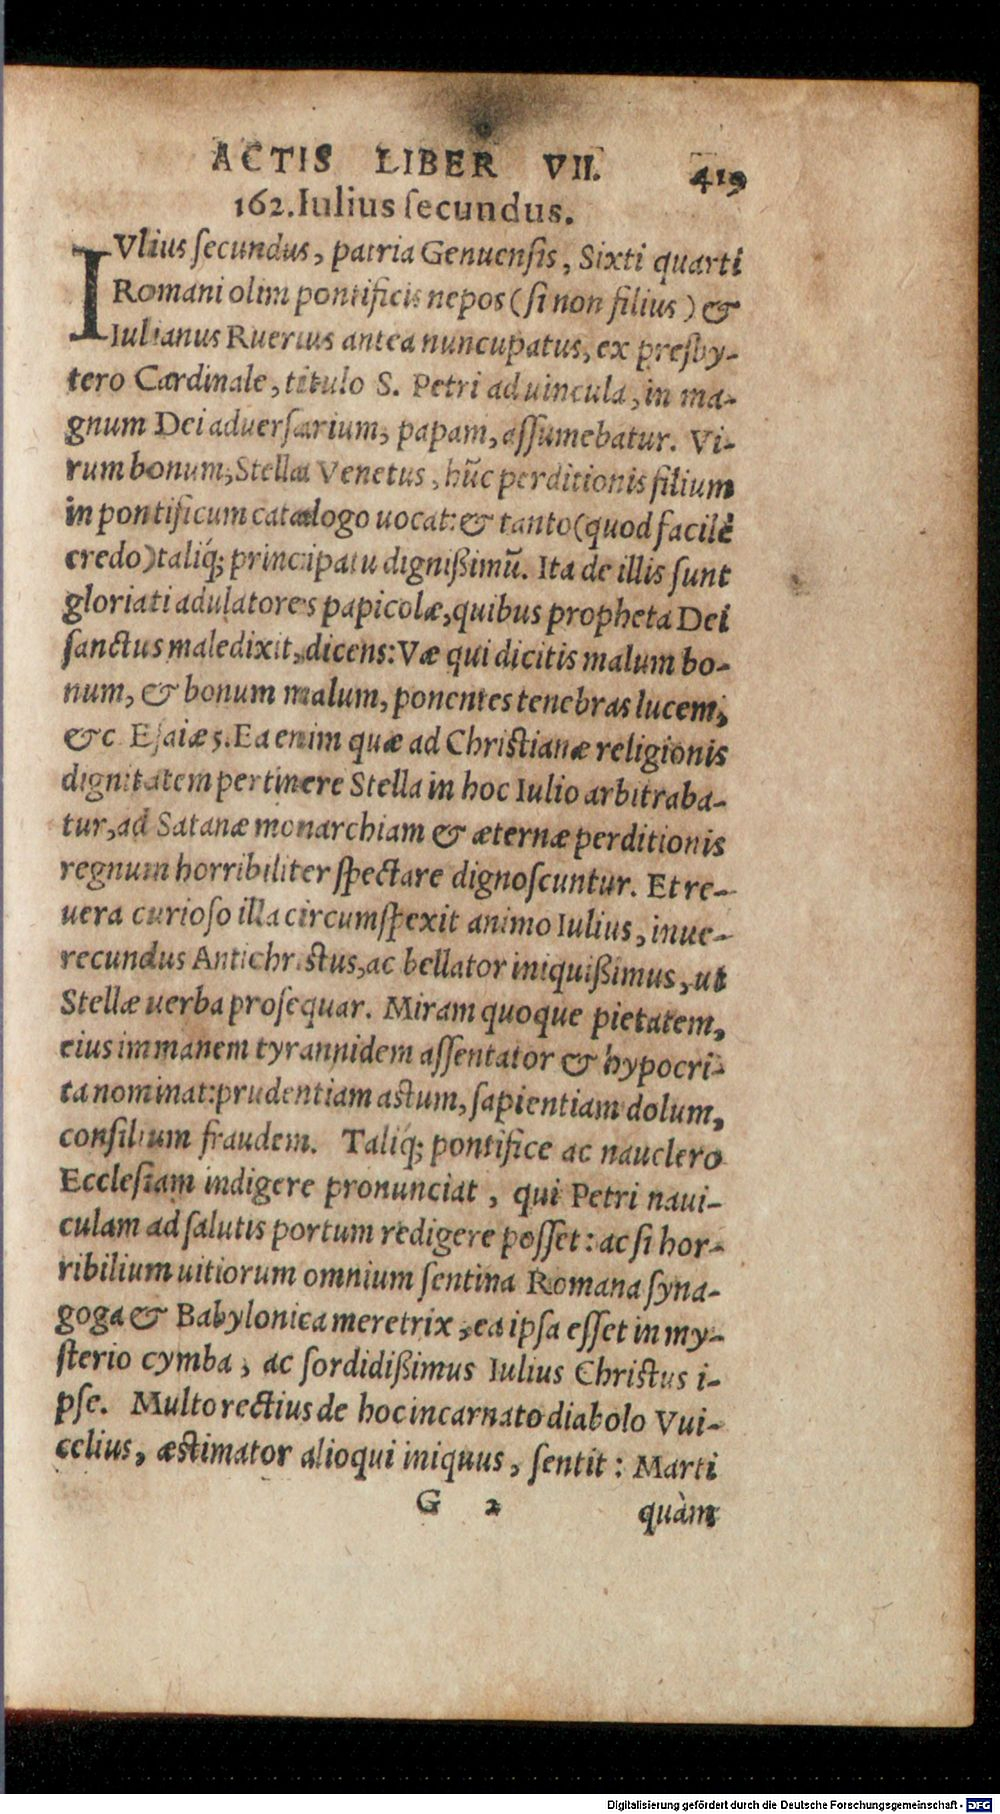 ACTIS LIBER VII. 419
162. Iulius ſecundus.
IVlius ſecundus, patria Genuenſis, Sixti quarti
Romani olim pontificis nepos (ſi non filius) &
Iulianus Ruerius antea nuncupatus, ex preſby-
tero Cardinale, titulo S. Petri ad uincula, in ma-
gnum Dei aduerſarium, papam, aſſumebatur. Vi-
rum bonum, Stella Venetus, hūc perditionis filium
in pontificum catalogo uocat: & tanto (quod facilè
credo) taliq́; principatu digniſſimū. Ita de illis ſunt
gloriati adulatores papicolæ, quibus propheta Dei
ſanctus maledixit, dicens: Væ qui dicitis malum bo-
num, & bonum malum, ponentes tenebras lucem,
&c Eſaiæ 5. Ea enim quæ ad Chriſtianæ religionis
dignitatem pertinere Stella in hoc Iulio arbitraba-
tur, ad Satanæ monarchiam & æternæ perditionis
regnum horribiliter ſpectare dignoſcuntur. Et re-
uera curioſo illa circumſpexit animo Iulius, inue-
recundus Antichriſtus, ac bellator iniquißimus, ut
Stellæ uerba proſequar. Miram quoque pietatem,
eius immanem tyrannidem aſſentator & hypocri-
ta nominat: prudentiam aſtum, ſapientiam dolum,
conſilium fraudem. Taliq́; pontifice ac nauclero
Eccleſiam indigere pronunciat, qui Petri naui-
culam ad ſalutis portum redigere poſſet: ac ſi hor-
ribilium uitiorum omnium ſentina Romana ſyna-
goga & Babylonica meretrix, ea ipſa eſſet in my-
ſterio cymba, ac ſordidißimus Iulius Chriſtus i-
pſe. Multo rectius de hoc incarnato diabolo Vui-
celius, æſtimator alioqui iniquus, ſentit: Marti
G 2 quàm
Digitalisierung gefördert durch die Deutsche Forschungsgemeinschaft - DFG